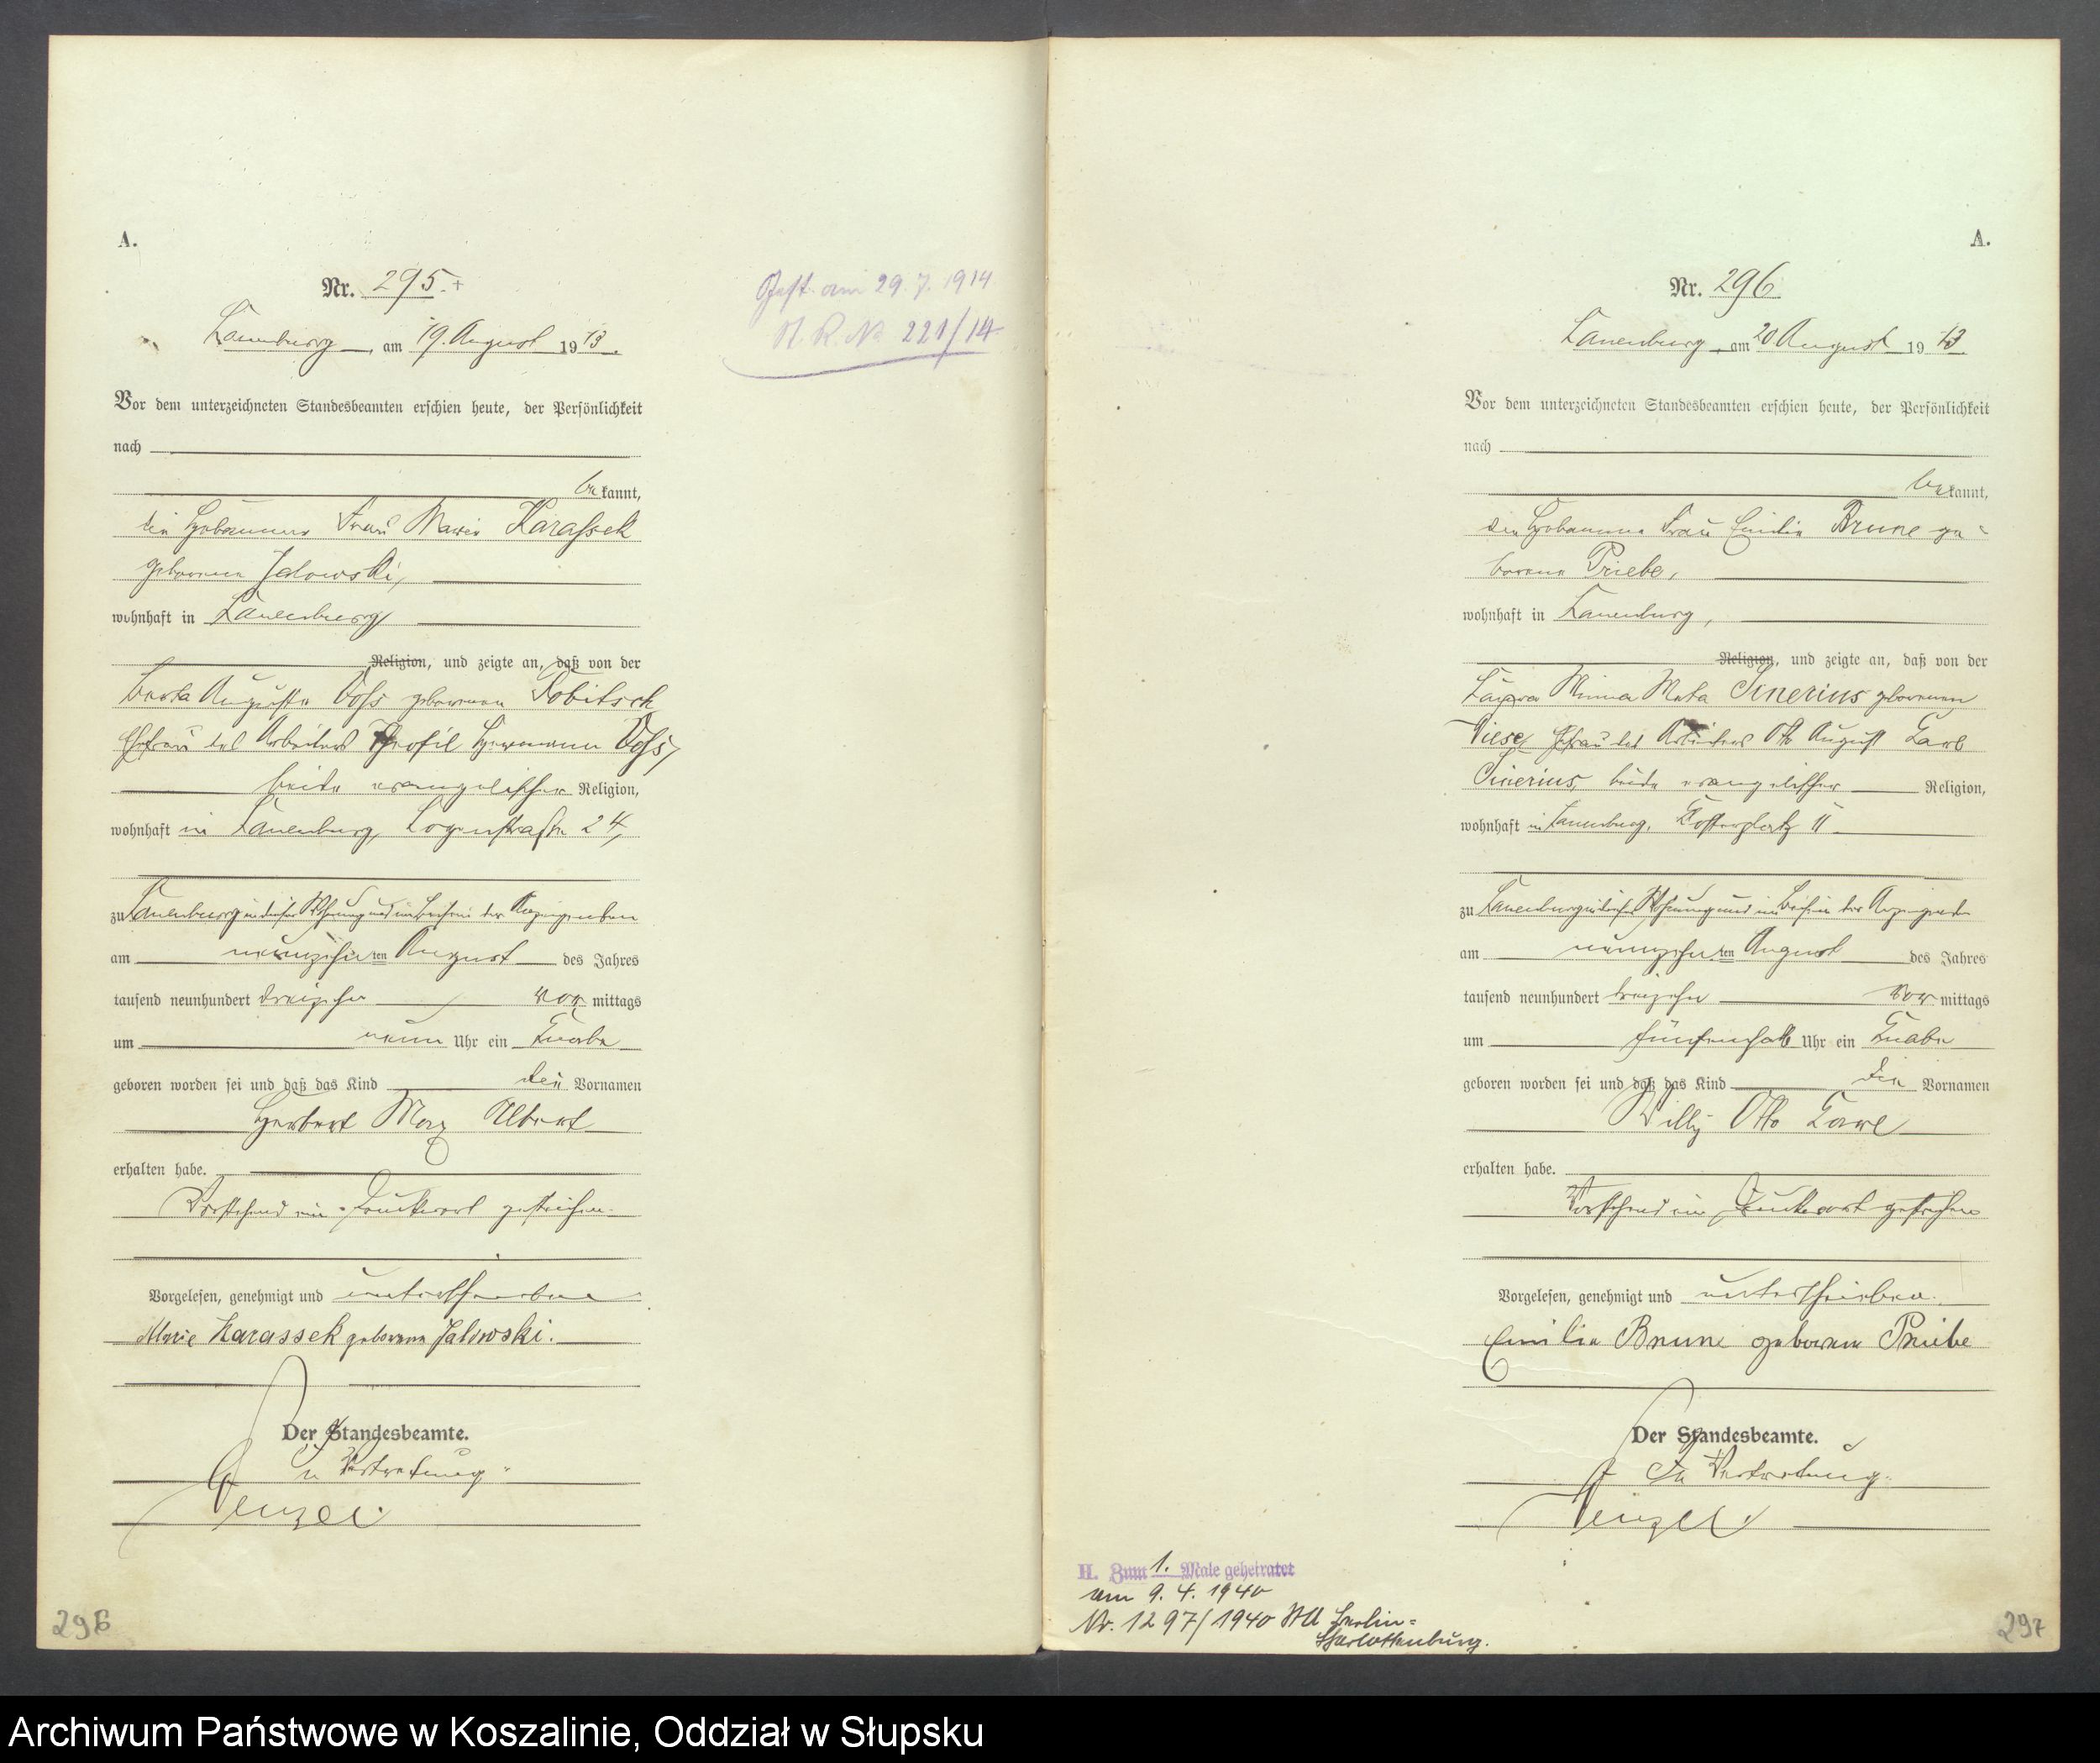 A.
Nr. 295.+
Lauenburg, am 19. August 1913.
Gest. am 29.7.1914
St. R. No 221/14
Vor dem unterzeichneten Standesbeamten erschien heute, der Persönlichkeit
nach
bekannt,
die Hebamme Frau Marie Karassek
geborene Jalowski,
wohnhaft in Lauenburg
Religion, und zeigte an, daß von der
Berta Auguste Voß geborenen Kobitsch,
Ehefrau des Arbeiters Theofil Hermann Voß,
beide evangelischer Religion,
wohnhaft in Lauenburg, Logenstraße 24,
zu Lauenburg in dieser Wohnung und im Beisein der Anzeigenden
am neunzehnten August des Jahres
tausend neunhundert dreizehn vormittags
um neun Uhr ein Knabe
geboren worden sei und daß das Kind die Vornamen
Herbert Max Albert
erhalten habe.
Vorstehend ein Druckwort gestrichen.
Vorgelesen, genehmigt und unterschrieben
Marie Karassek geborene Jalowski.
Der Standesbeamte.
In Vertretung.
296
A.
Nr. 296
Lauenburg, am 20 August 1913.
Vor dem unterzeichneten Standesbeamten erschien heute, der Persönlichkeit
nach
bekannt,
die Hebamme Frau Emilie Brune ge-
borene Priebe,
wohnhaft in Lauenburg,
Religion, und zeigte an, daß von der
Minna Meta geborenen
Ehefrau des Arbeiters Otto August Carl
beide evangelischer Religion,
wohnhaft in Lauenburg, 11
zu Lauenburg in dieser Wohnung und im Beisein der Anzeigenden
am neunzehnten August des Jahres
tausend neunhundert dreizehn vormittags
um fünfeinhalb Uhr ein Knabe
geboren worden sei und daß das Kind die Vornamen
Willy Otto Carl
erhalten habe.
Vorstehend ein Druckwort gestrichen
Vorgelesen, genehmigt und unterschrieben.
Emilie Brune geborene Priebe
Der Standesbeamte.
In Vertretung.
II. Zum 1. Male geheiratet
am 9.4.1940
Nr. 1297/1940 StA Berlin=
Charlottenburg.
297
Archiwum Państwowe w Koszalinie, Oddział w Słupsku